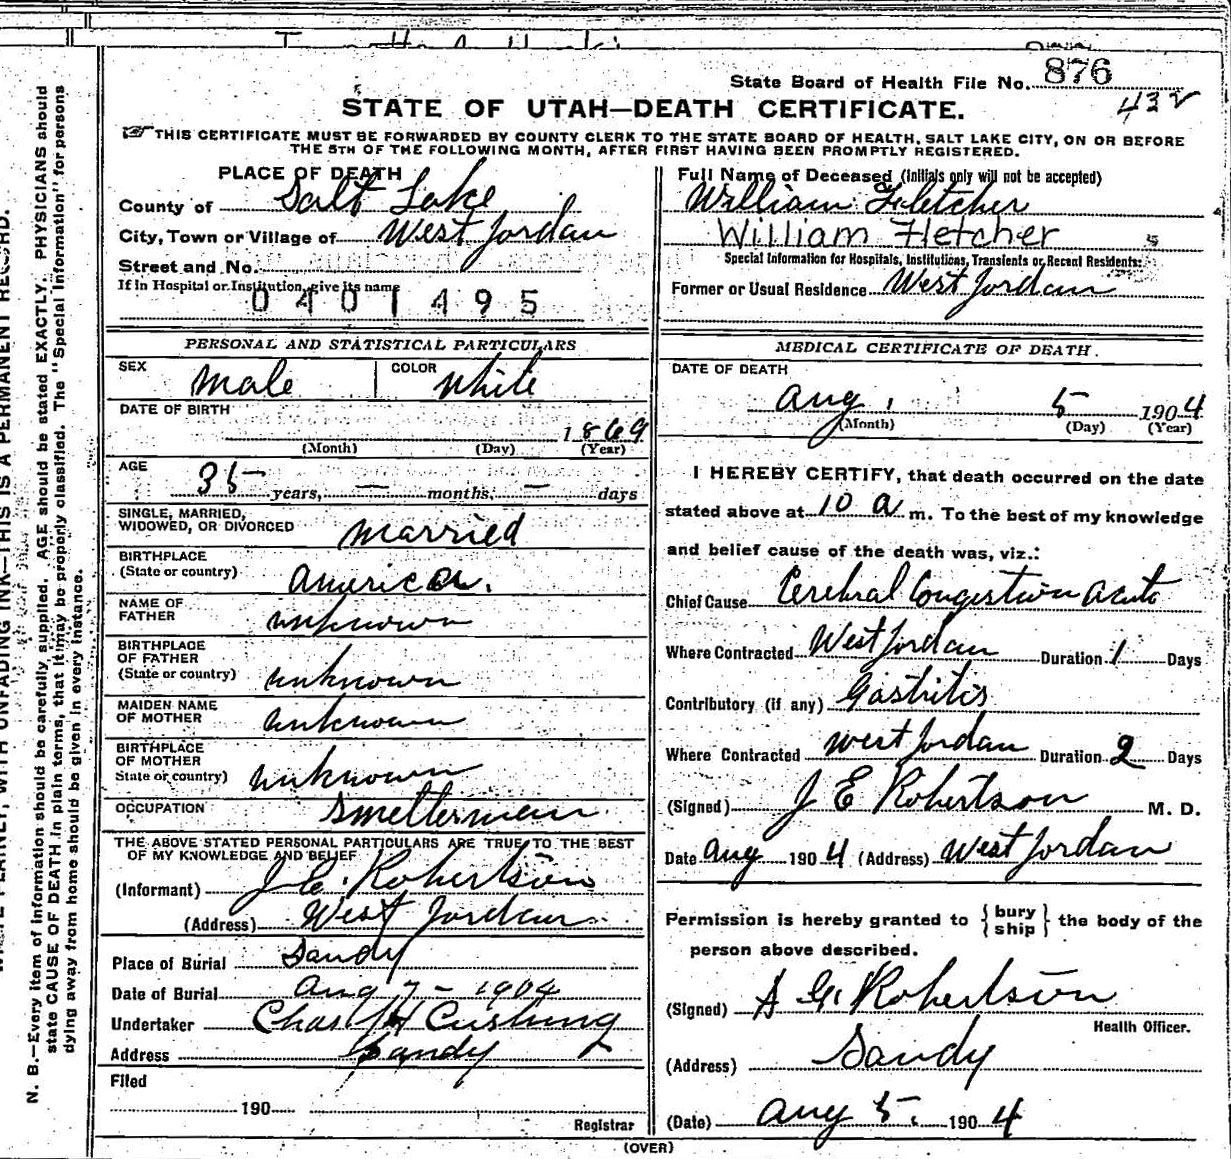 State Board of Health File No. 876
432
STATE OF UTAH—DEATH CERTIFICATE.
☞ THIS CERTIFICATE MUST BE FORWARDED BY COUNTY CLERK TO THE STATE BOARD OF HEALTH, SALT LAKE CITY, ON OR BEFORE
THE 5TH OF THE FOLLOWING MONTH, AFTER FIRST HAVING BEEN PROMPTLY REGISTERED.
PLACE OF DEATH
County of Salt Lake
City, Town or Village of West Jordan
Street and No.
If in Hospital or Institution, give its name
0401495
Full Name of Deceased (Initials only will not be accepted)
William Fletcher
William Fletcher
Special Information for Hospitals, Institutions, Transients or Recent Residents:
Former or Usual Residence West Jordan
PERSONAL AND STATISTICAL PARTICULARS
SEX Male COLOR White
DATE OF BIRTH
1869
(Month) (Day) (Year)
AGE
35 years, — months, — days
SINGLE, MARRIED,
WIDOWED, OR DIVORCED married
BIRTHPLACE
(State or country) American.
NAME OF
FATHER unknown
BIRTHPLACE
OF FATHER
(State or country) unknown
MAIDEN NAME
OF MOTHER unknown
BIRTHPLACE
OF MOTHER
State or country) unknown
OCCUPATION Smelterman
THE ABOVE STATED PERSONAL PARTICULARS ARE TRUE TO THE BEST
OF MY KNOWLEDGE AND BELIEF
(Informant) J E. Robertson
(Address) West Jordan
Place of Burial Sandy
Date of Burial Aug 7 - 1904
Undertaker Chas H Cushing
Address Sandy
Filed
190
Registrar
MEDICAL CERTIFICATE OF DEATH.
DATE OF DEATH
Aug. 5 1904
(Month) (Day) (Year)
I HEREBY CERTIFY, that death occurred on the date
stated above at 10 a m. To the best of my knowledge
and belief cause of the death was, viz.:
Chief Cause Cerebral Congestion Acute
Where Contracted West Jordan Duration 1 Days
Contributory (if any) Gastritis
Where Contracted West Jordan Duration 2 Days
(Signed) J E Robertson M. D.
Date Aug 1904 (Address) West Jordan
Permission is hereby granted to {bury
ship} the body of the
person above described.
(Signed) A G. Robertson
Health Officer.
(Address) Sandy
(Date) Aug 5. 1904
(OVER)
N. B.—Every item of information should be carefully supplied. AGE should be stated EXACTLY. PHYSICIANS should
state CAUSE OF DEATH in plain terms, that it may be properly classified. The "Special Information" for persons
dying away from home should be given in every instance.
PLAINLY, WITH UNFADING INK—THIS IS A PERMANENT RECORD.